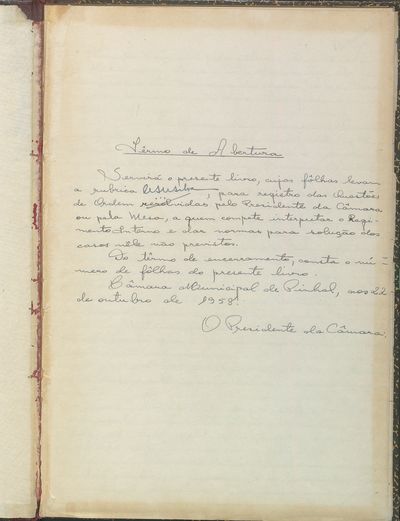 Têrmo de Abertura
Servirá o presente livro, cujas fôlhas levam
a rubrica , para registro das Questões
de Ordem resolvidas pelo Presidente da Câmara
ou pela Mesa, a quem compete interpretar o Regi-
mento Interno e dar normas para solução dos
casos nêle não previstos.
Do têrmo de encerramento, consta o nú-
mero de fôlhas do presente livro.
Câmara Municipal de Pinhal, aos 22
de outubro de 1958.
O Presidente da Câmara,